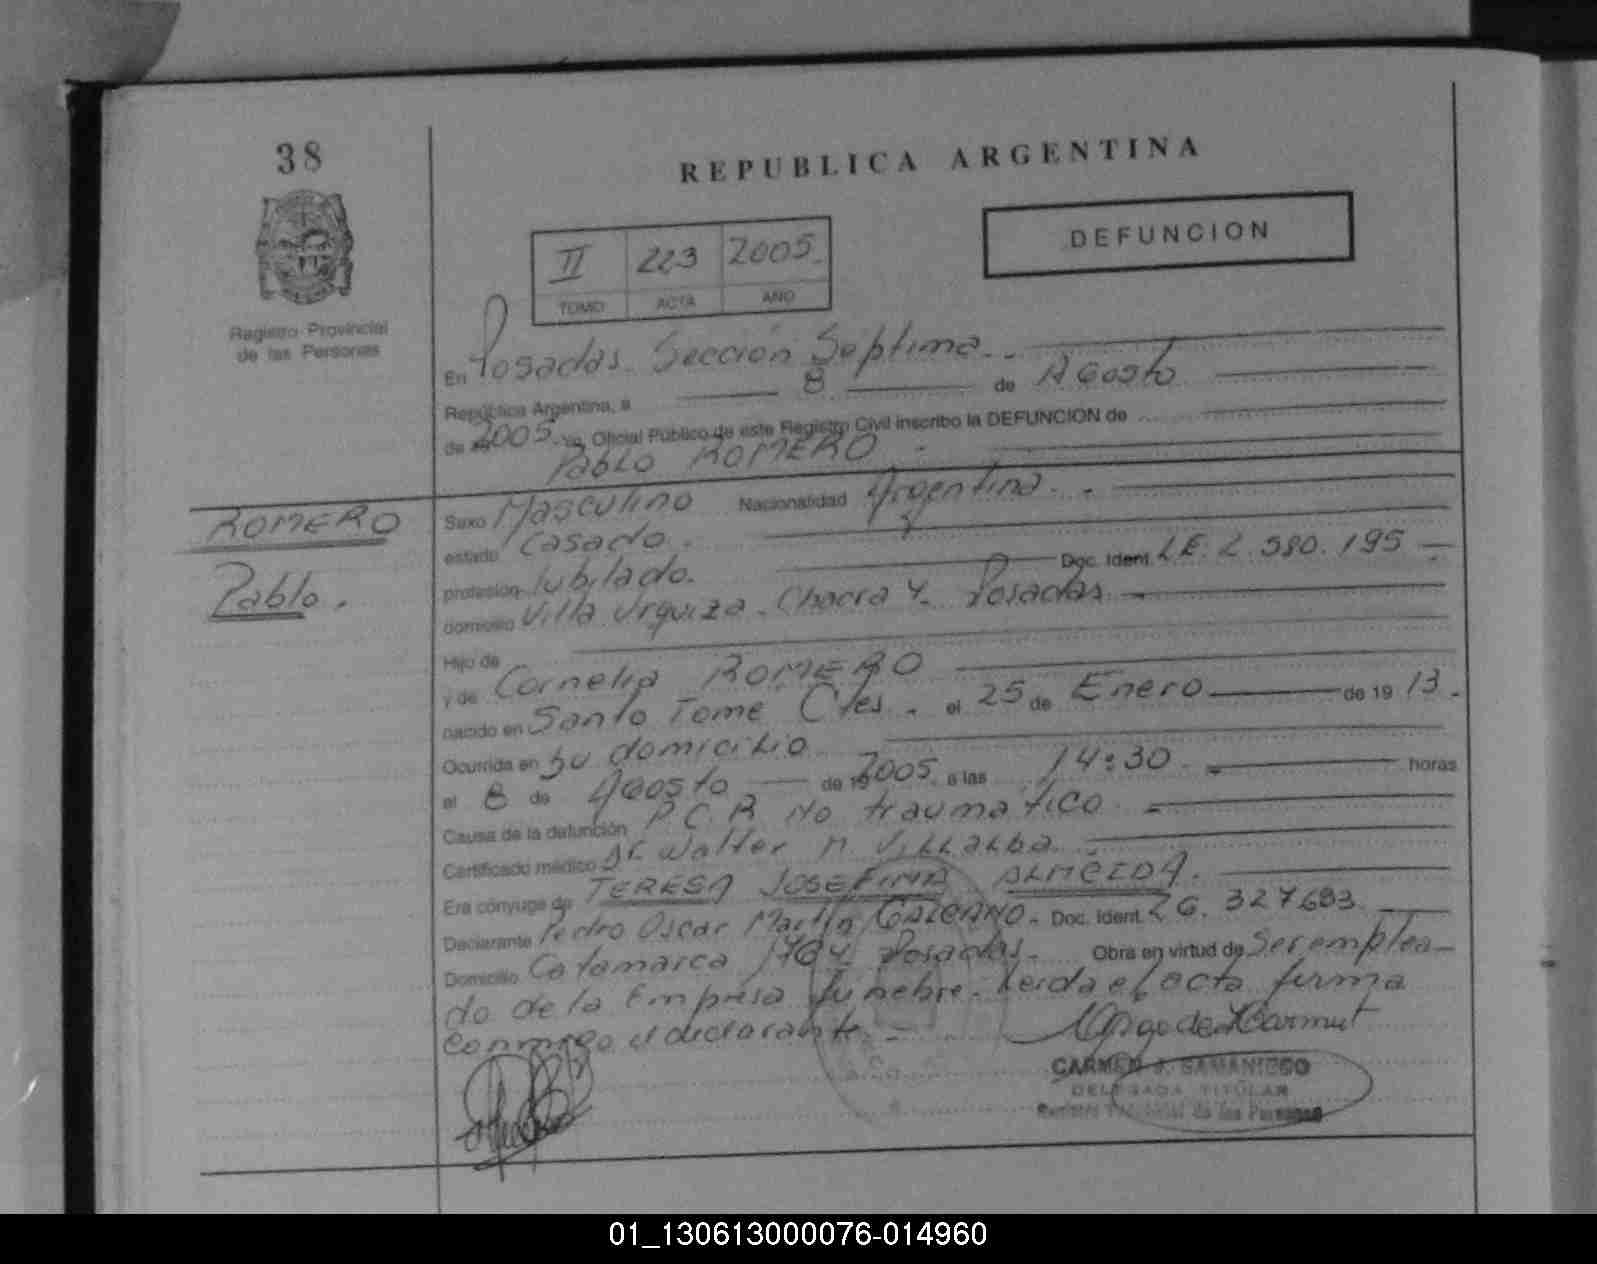 38
REPUBLICA ARGENTINA
DEFUNCION
II 223 2005
TOMO ACTA AÑO
Registro Provincial
de las Personas
En Posadas Sección Septima
República Argentina, a 8 de Agosto
de 2005 Yo, Oficial Público de este Registro Civil inscribo la DEFUNCION de
Pablo ROMERO
ROMERO
Pablo.
Sexo Masculino Nacionalidad Argentina
estado Casado.
profesión Jubilado. Doc. Ident. L.E. 2.580.195
domicilio Villa Urquiza. Chacra 4. Posadas
Hijo de
y de Cornelia ROMERO
nacido en Santo Tomé Ctes. el 25 de Enero de 19 13.
Ocurrida en Su domicilio
el 8 de Agosto de 2005 a las 14:30 horas
Causa de la defunción P.C.R No traumatico
Certificado médico Dr. Walter M. VILLALBA
Era cónyuge de TERESA JOSEFINA ALMEIDA.
Declarante Pedro Oscar Martin GALEANO. Doc. Ident. 26.327683
Domicilio Catamarca 1764 Posadas. Obra en virtud de Ser emplea-
do de la Empresa funebre. Leida el acta firma
conmigo el declarante.
CARMEN J. SAMANIEGO
DELEGADA TITULAR
Registro Provincial de las Personas
01_130613000076-014960